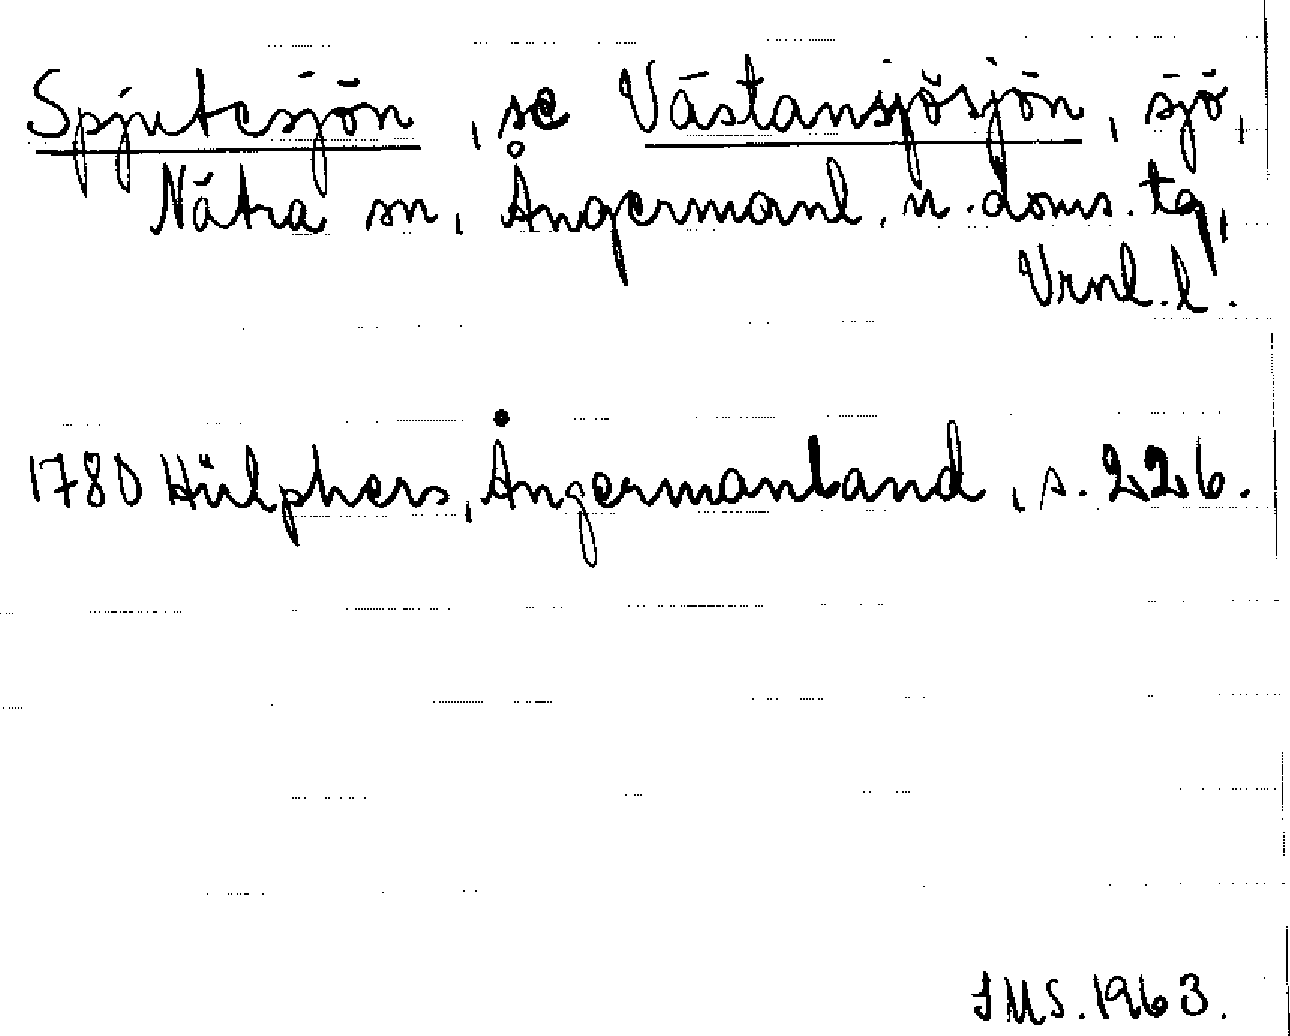 Spjutesjön, se Västansjösjön, sjö,
Nätra sn, Ångermanl. n. doms. tg,
Vrnl. l.
1780 Hülphers, Ångermanland, s. 226.
JMS. 1963.